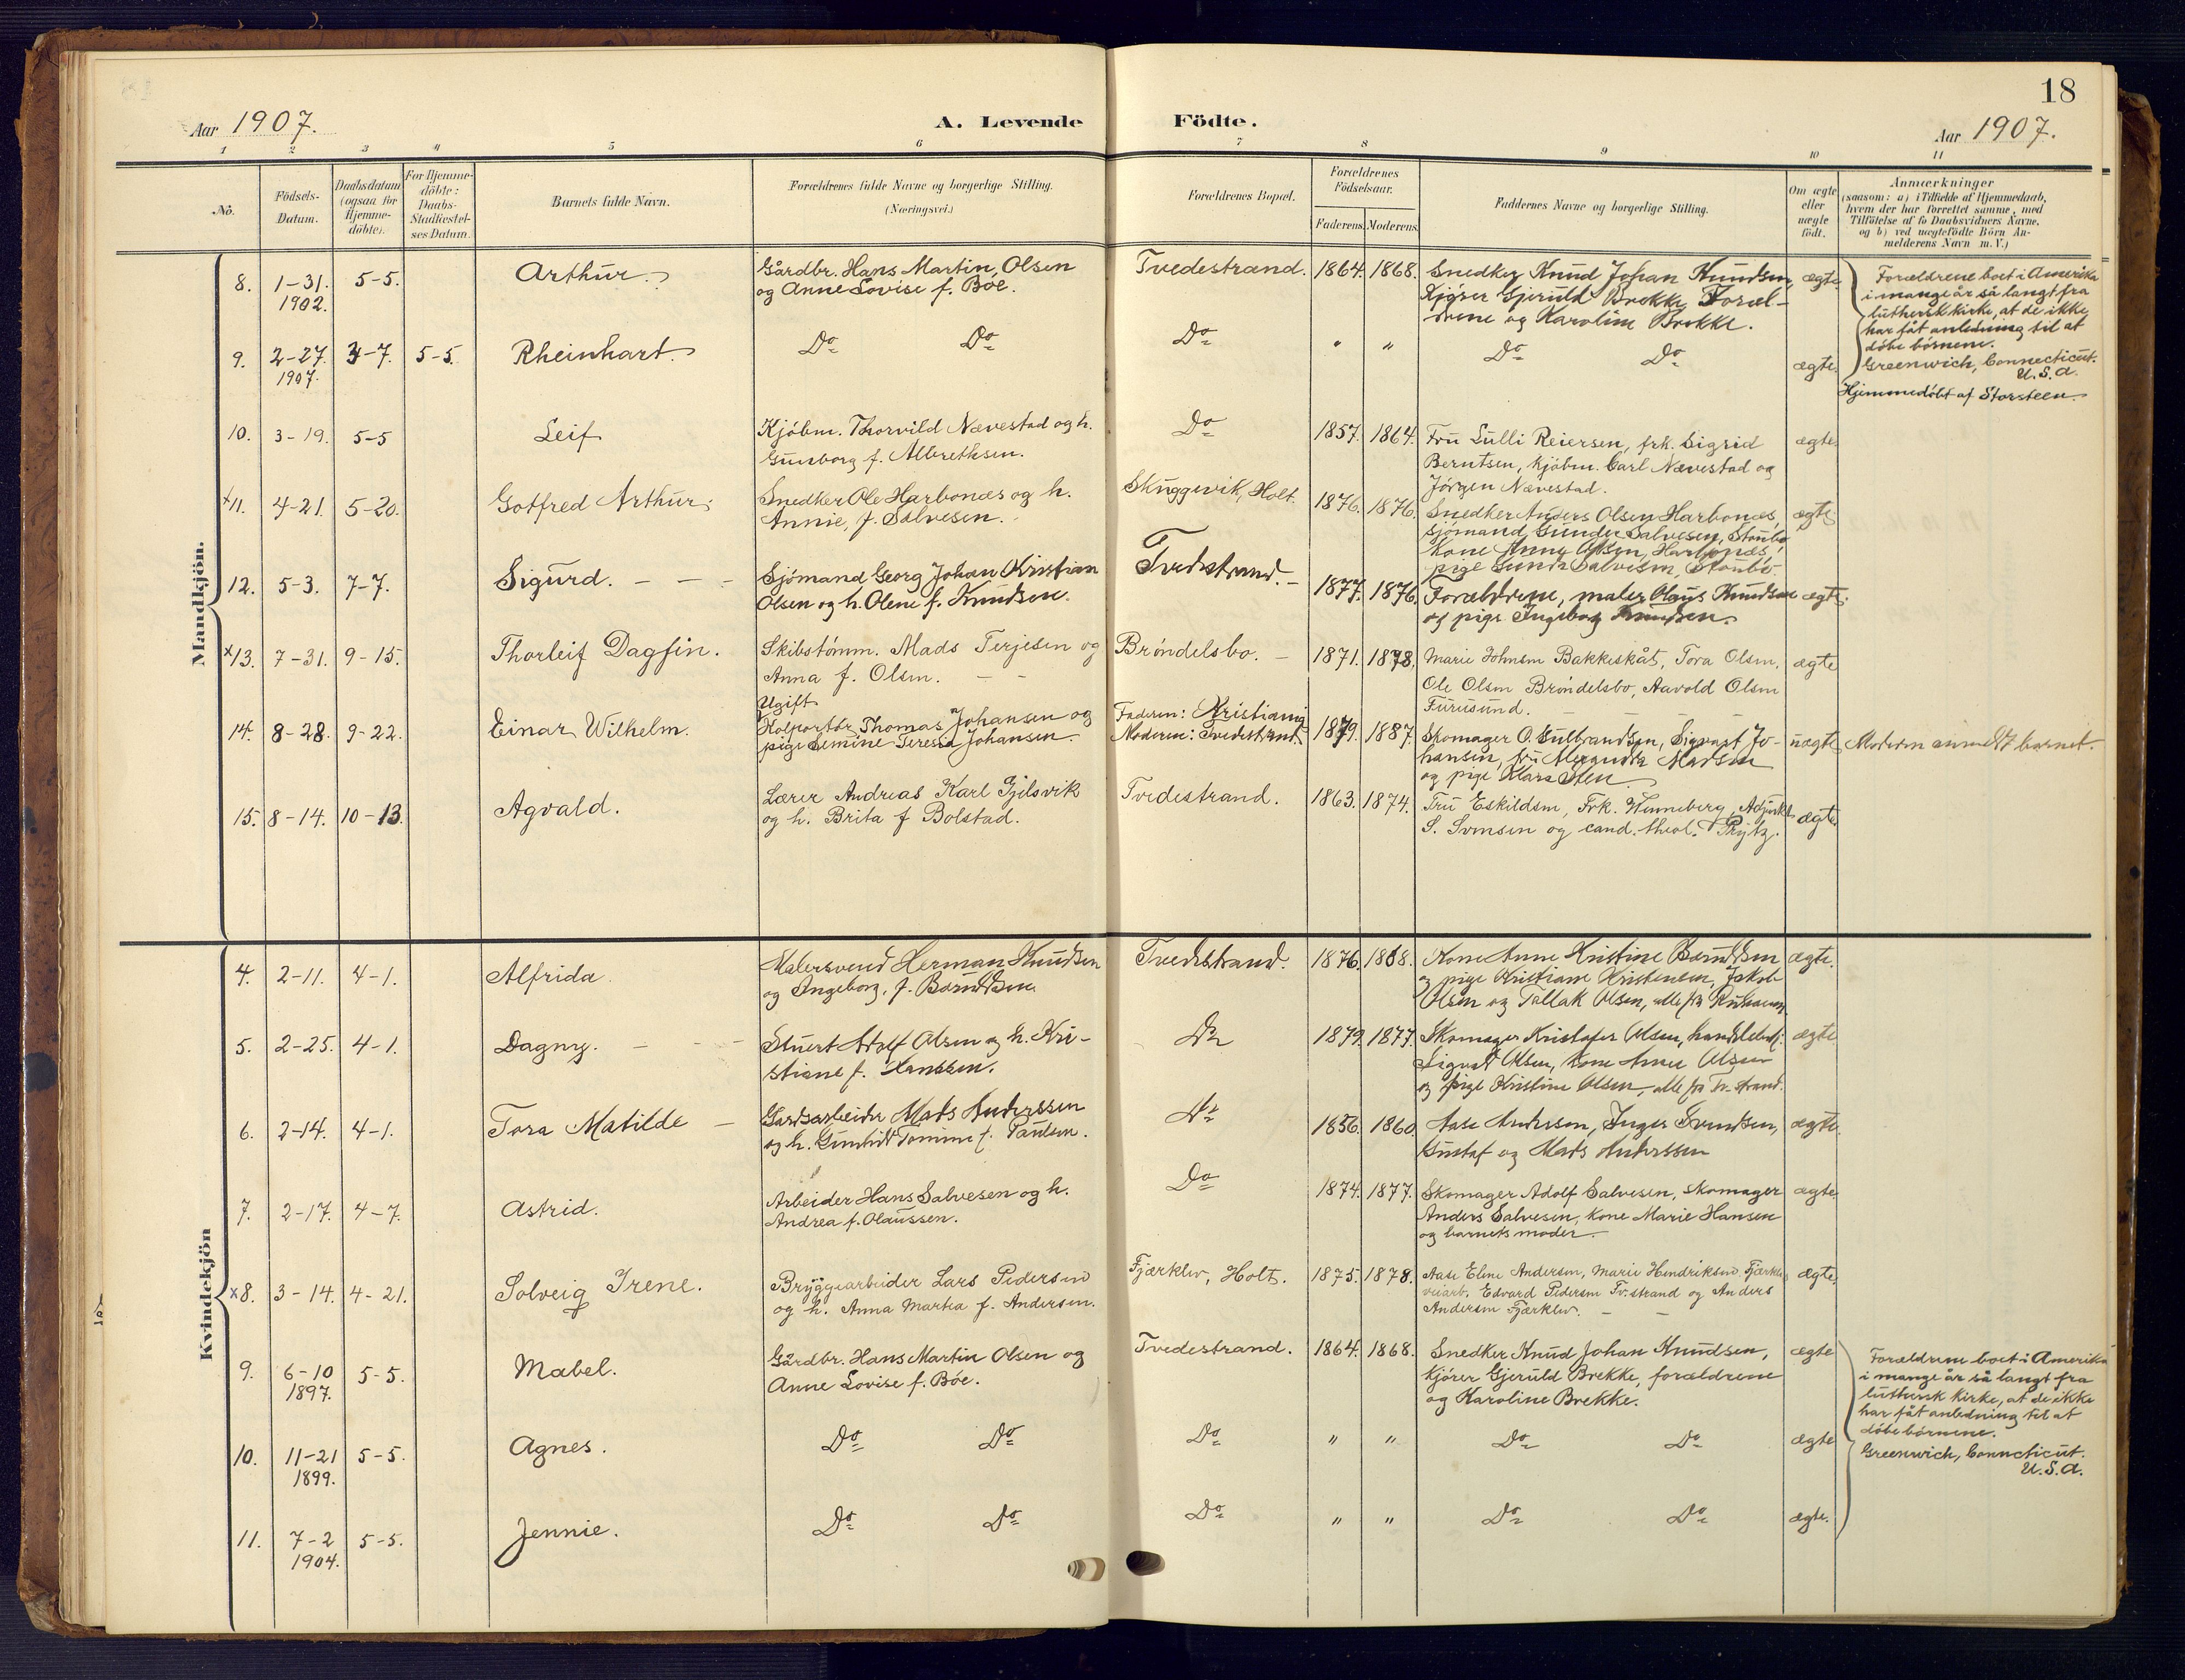 18
Aar 1907. A. Levende Födte. Aar 1907.
1 2 3 4 5 6 7 8 9 10 11
No. Födsels-Datum. Daabsdatum (ogsaa for Hjemme-döbte). For Hjemme-döbte: Daabs-Stadfæstel-ses Datum. Barnets fulde Navn. Forældrenes fulde Navne og borgerlige Stilling. (Næringsvei.) Forældrenes Bopæl. Forældrenes Födselsaar. Faderens. Moderens. Faddernes Navne og borgerlige Stilling. Om ægte eller uægte födt. Anmærkninger (saasom: a) i Tilfælde af Hjemmedaab, hvem der har forrettet samme, med Tilföielse af to Daabsvidners Navne, og b) ved uægtefödte Börn An-melderens Navn m. V.)
Mandkjön.
8. 1-31. 1902. 5-5. Arthur. Gårdbr. Hans Martin Olsen
og Anne Lovise f. Böe. Tvedestrand. 1864. 1868. Snedker Knud Johan Knudsen,
Kjörer Gjeruld Brekke, Foræl-
drene og Karoline Brekke. ægte.
Forældrene boet i Amerika
i mange år så langt fra
luthersk kirke, at de ikke
har fåt anledning til at
döbe börnene.
Greenwich, Connecticut.
U.S.A.
9. 2-27. 1907. 4-7. 5-5. Rheinhart. Do Do Do " " Do Do ægte.
Hjemmedöbt af Storsteen.
10. 3-19. 5-5 Leif Kjöbm. Thorvild Nævestad og h.
Gunborg f. Albrethsen. Do 1857. 1864. Fru Lulli Reiersen, frk. Sigrid
Berntsen, kjöbm. Carl Nævestad og
Jörgen Nævestad. ægte.
x11. 4-21. 5-20. Gotfred Arthur. Snedker Ole Harbonæs og h.
Annie, f. Salvesen. Skuggevik, Holt. 1876. 1876. Snedker Anders Olsen Harbonæs,
sjömand Gunder Salvesen, Stöubö
Kone Anne Olsen, Harbonæs,
pige Gunda Salvesen, Stöubö ægte.
12. 5-3. 7-7. Sigurd. Sjömand Georg Johan Kristian
Olsen og h. Olene f. Knudsen. Tvedestrand. 1877. 1876. Forældrene, maler Olaus Knudsen
og pige Ingeborg Knudsen. ægte.
x13. 7-31. 9-15. Thorleif Dagfin. Skibstömm. Mads Terjesen og
Anna f. Olsen. Bröndelsbo. 1871. 1878. Marie Johnsen Bakkeskåt, Tora Olsen,
Ole Olsen Bröndelsbo, Aavold Olsen
Furusund. ægte
14. 8-28. 9-22. Einar Wilhelm. Ugift
Kolportör Thomas Johansen og
pige Semine Teresia Johansen. Faderen: Kristiania
Moderen: Tvedestrand. 1879. 1887. Skomager O. Gulbrandsen, Sigvart Jo-
hansen, fru Alexandra Madsen
og pige Klara Sten uægte Moderen anmeldt barnet.
15. 8-14. 10-13. Agvald. Lærer Andreas Karl Gjilsvik
og h. Brita f. Bolstad. Tvedestrand. 1863. 1874. Fru Eskildsen, Frk. Henneberg, Adjunkt
S. Svensen og cand. theol. Prytz. ægte.
Kvindekjön
4. 2-11. 4-1. Alfrida. Malersvend Herman Knudsen
og Ingeborg, f. Berndtsen. Tvedestrand. 1876. 1888. Kone Anne Kristine Berndtsen
og pige Kristiane Kristensen, Jakob
Olsen og Tallak Olsen, alle fra ægte.
5. 2-25. 4-1. Dagny. Stuert Adolf Olsen og h. Kri-
stiane f. Hanssen. Do 1879. 1877. Skomager Kristofer Olsen,
Sigvald Olsen, kone Anne Olsen
og pige Kristine Olsen, alle fra Tv.strand. ægte.
6. 2-14. 4-1. Tora Matilde Gardsarbeider Mads Anderssen
og h. Gunhild Tomine f. Paulsen. Do 1856. 1860 Aase Anderssen, Inger Svendsen,
Gustaf og Mads Anderssen ægte.
7. 2-17. 4-7. Astrid. Arbeider Hans Salvesen og h.
Andrea f. Olaussen. Do 1874. 1877. Skomager Adolf Salvesen, skomager
Anders Salvesen, kone Marie Hansen
og barnets moder. ægte.
x8. 3-14. 4-21. Solveig Irene. Bryggearbeider Lars Pedersen
og h. Anna Martea f. Andersen. Fjærklev, Holt. 1875. 1878. Aase Eline Andersen, Marie Hendriksen Fjærklev
veiarb. Edvard Pedersen Tv.strand og Anders
Andersen Fjærklev. ægte.
9. 6-10 1897. 5-5. Mabel. Gårdbr. Hans Martin Olsen og
Anne Lovise f. Böe. Tvedestrand. 1864. 1868. Snedker Knud Johan Knudsen,
Kjörer Gjeruld Brekke, forældrene
og Karoline Brekke. ægte
Forældrene boet i Amerika
i mange år så langt fra
luthersk kirke, at de ikke
har fåt anledning til at
döbe börnene.
Greenwich, Conncticut.
U.S.A.
10. 11-21 1899. 5-5. Agnes. Do Do Do " " Do Do ægte
11. 7-2 1904. 5-5. Jennie. Do Do Do " " Do Do ægte.